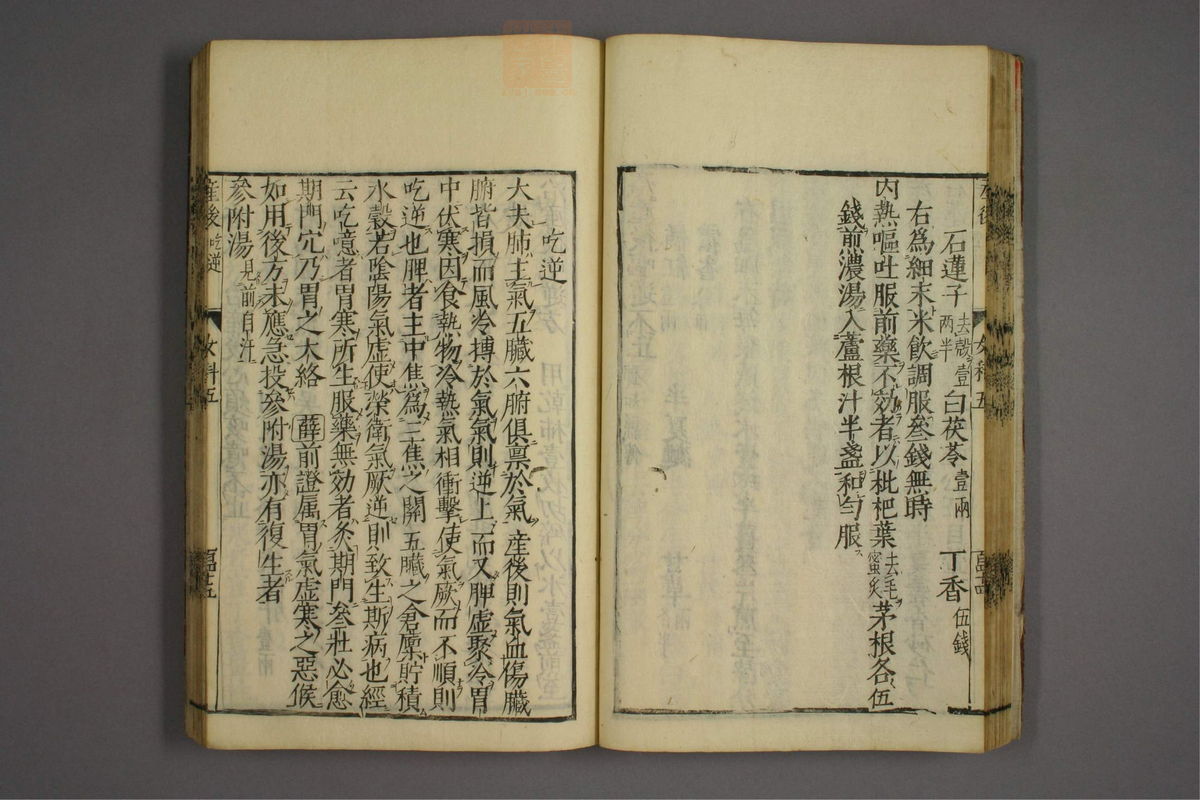 石蓮子去殼壹两半 白茯苓壹兩 丁香伍錢
右爲細末米飲調服叁錢無時
内熱嘔吐服前藥不効者以枇杷葉去毛蜜炙茅根各伍
錢煎濃湯入蘆根汁半盞和勻服
吃逆
大夫肺主氣五臟六腑俱禀於氣產後則氣血傷臟
腑皆損而風冷搏於氣氣則逆上而又脾虛聚冷胃
中伏寒因食熱物冷熱氣相衝擊使氣厥而不順則
吃逆也脾者主中焦爲三焦之關五臟之倉廩貯積
水穀若陰陽氣虛使榮衛氣厥逆則致生斯病也經
云吃噫者胃寒所生服藥無効者灸期門叁壯必愈
期門穴乃胃之大絡 薛前證属胃氣虛寒之惡候
如用後方未應急投參附湯亦有復生者
參附湯見前自汗
産後 吃逆 女科五